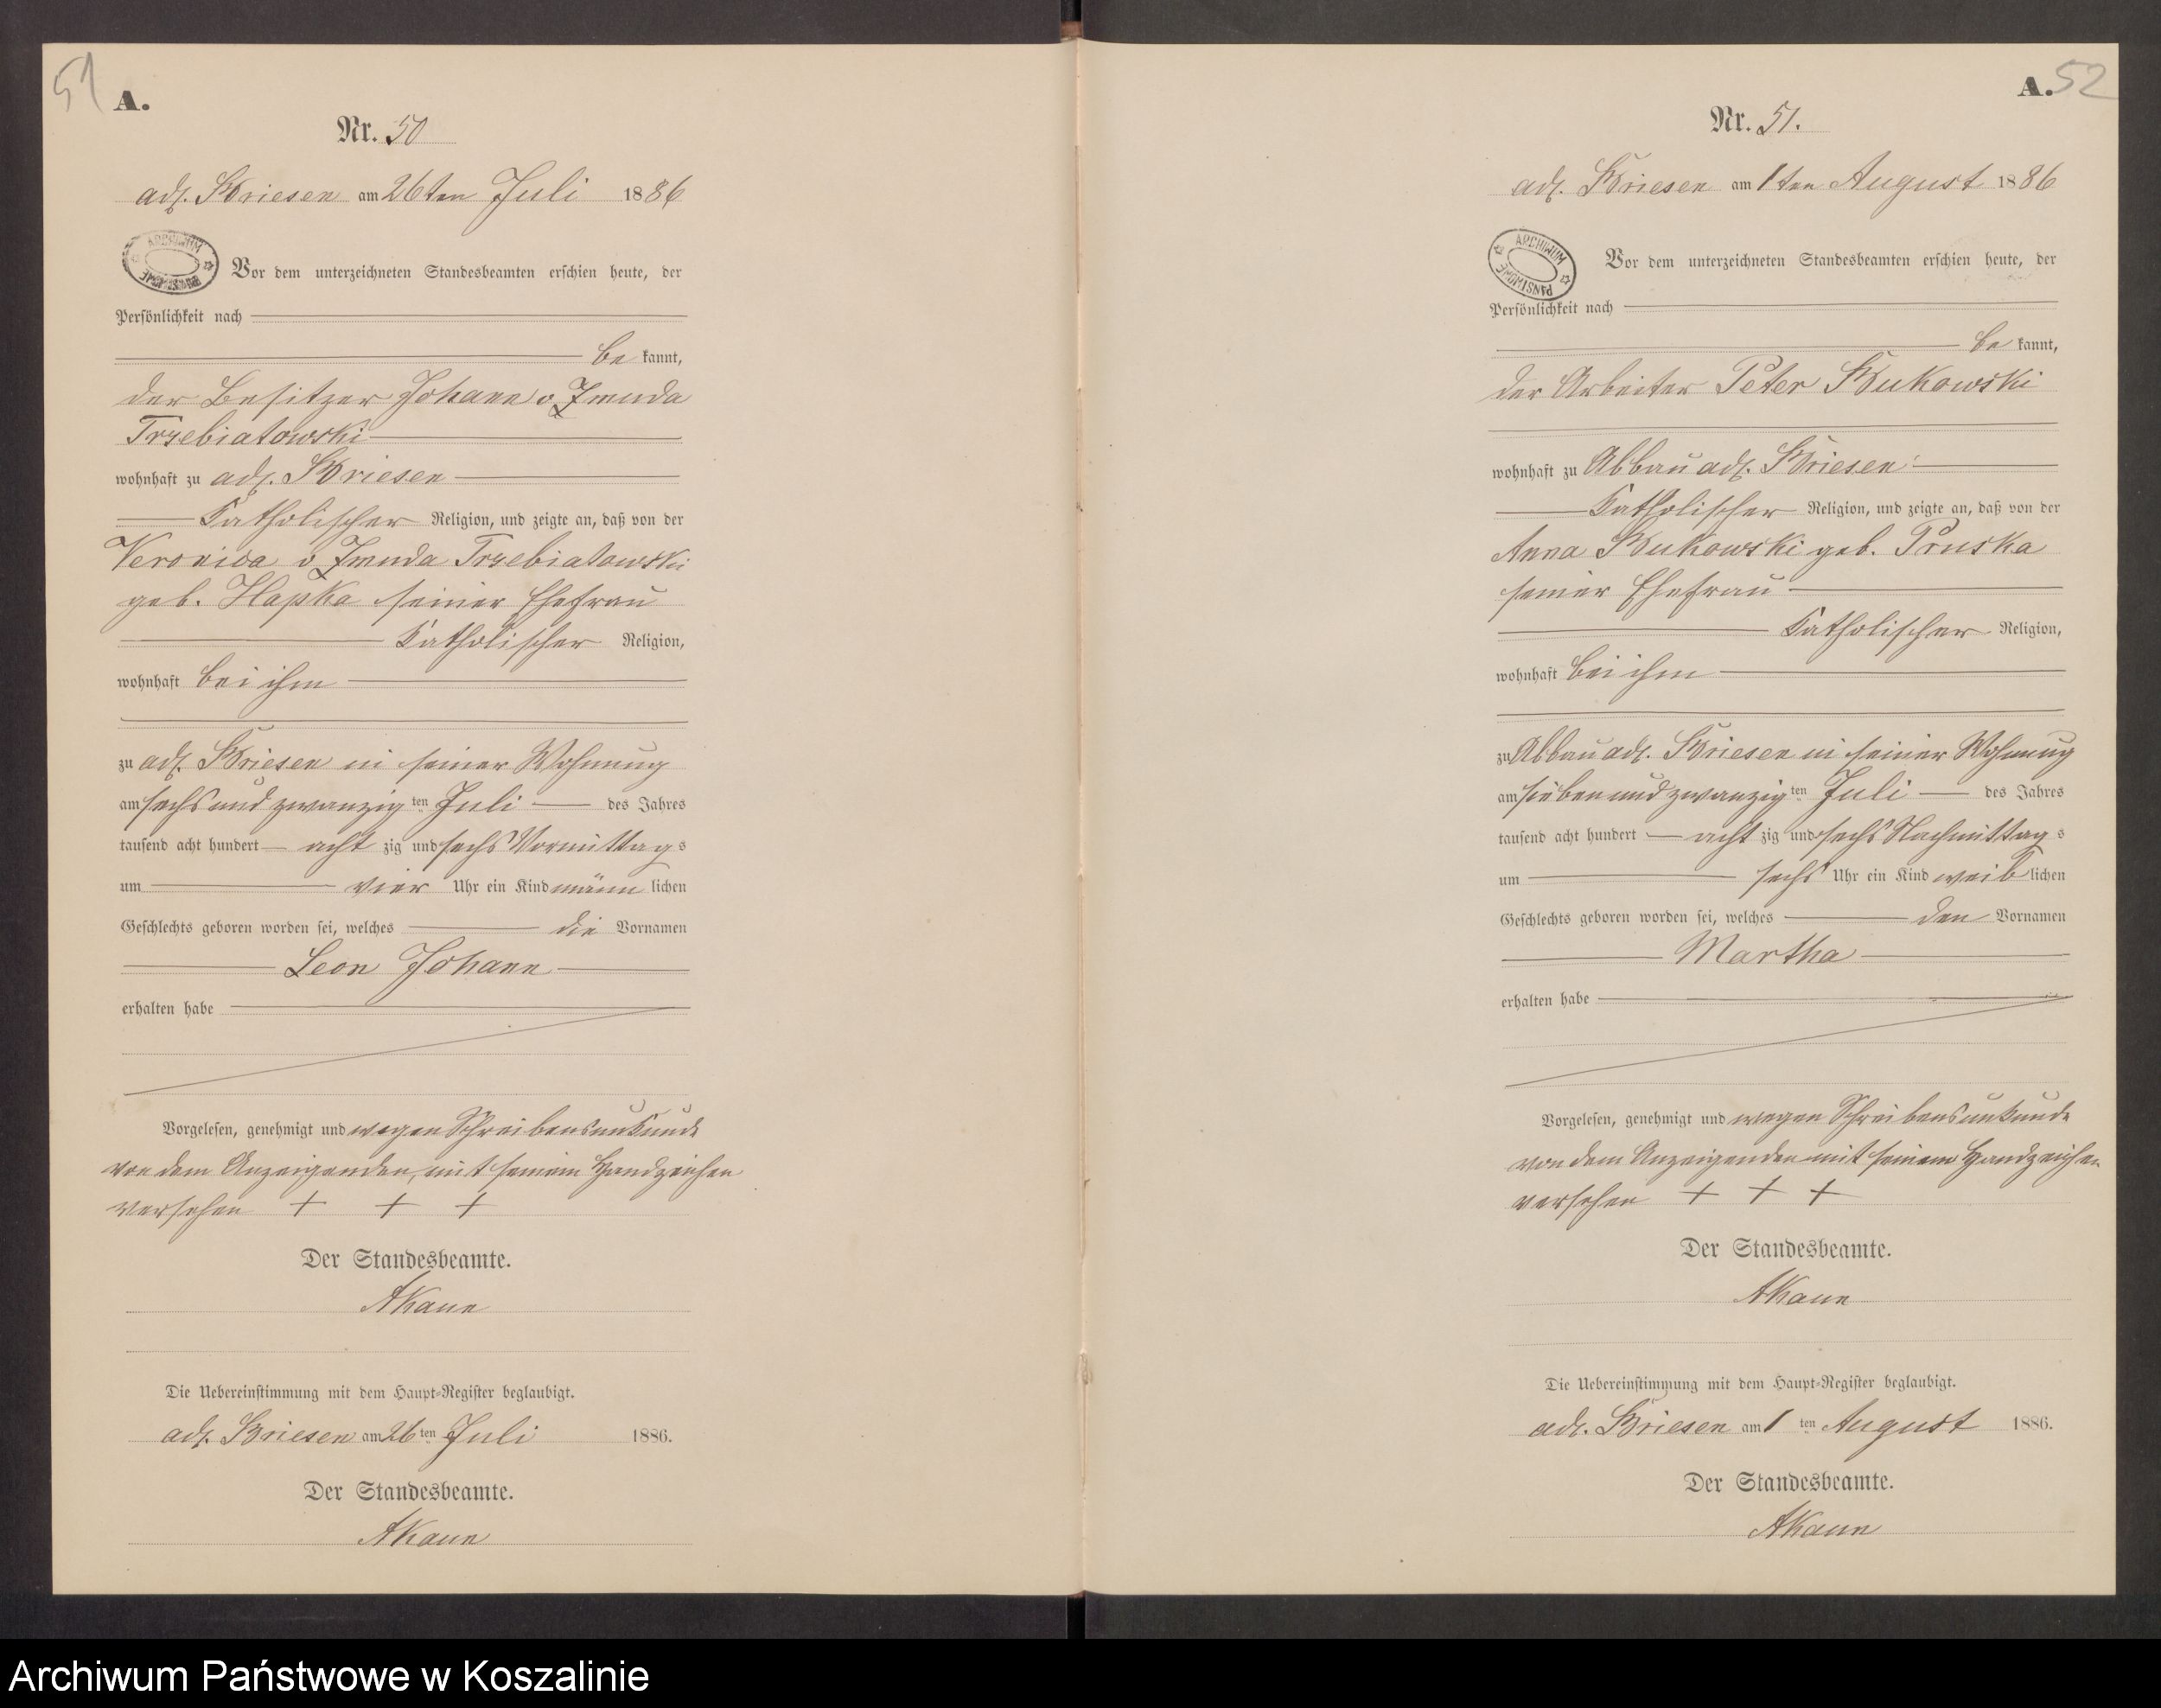 51
A.
Nr. 50
adl. Briesen am 26ten Juli 1886
ARCHIWUM PAŃSTWOWE
Vor dem unterzeichneten Standesbeamten erschien heute, der
Persönlichkeit nach
be kannt,
der Besitzer Johann v Zmuda
Trzebiatowski
wohnhaft zu adl. Briesen
Katholischer Religion, und zeigte an, daß von der
Veronica v Zmuda Trzebiatowski
geb. Hapka seiner Ehefrau
Katholischer Religion,
wohnhaft bei ihm
zu adl. Briesen in seiner Wohnung
am sechsundzwanzig ten Juli des Jahres
tausend acht hundert acht zig und sechs Vormittag s
um vier Uhr ein Kind männ lichen
Geschlechts geboren worden sei, welches die Vornamen
Leon Johann
erhalten habe
Vorgelesen, genehmigt und wegen Schreibensunkunde
von dem Anzeigenden, mit seinem Handzeichen
versehen + + +
Der Standesbeamte.
AKaun
Die Uebereinstimmung mit dem Haupt-Register beglaubigt.
adl. Briesen am 26 ten Juli 1886.
Der Standesbeamte.
AKaun
A. 52
Nr. 51.
adl. Briesen am 1ten August 1886
ARCHIWUM PAŃSTWOWE
Vor dem unterzeichneten Standesbeamten erschien heute, der
Persönlichkeit nach
be kannt,
der Arbeiter Peter Bukowski
wohnhaft zu Abbau adl. Briesen
Katholischer Religion, und zeigte an, daß von der
Anna Bukowski geb. Pruska
seiner Ehefrau
Katholischer Religion,
wohnhaft bei ihm
zu Abbau adl. Briesen in seiner Wohnung
am siebenundzwanzig ten Juli des Jahres
tausend acht hundert acht zig und sechs Nachmittag s
um sechs Uhr ein Kind weib lichen
Geschlechts geboren worden sei, welches den Vornamen
Martha
erhalten habe
Vorgelesen, genehmigt und wegen Schreibensunkunde
von dem Anzeigenden mit seinem Handzeichen
versehen + + +
Der Standesbeamte.
AKaun
Die Uebereinstimmung mit dem Haupt-Register beglaubigt.
adl. Briesen am 1 ten August 1886.
Der Standesbeamte.
AKaun
Archiwum Państwowe w Koszalinie